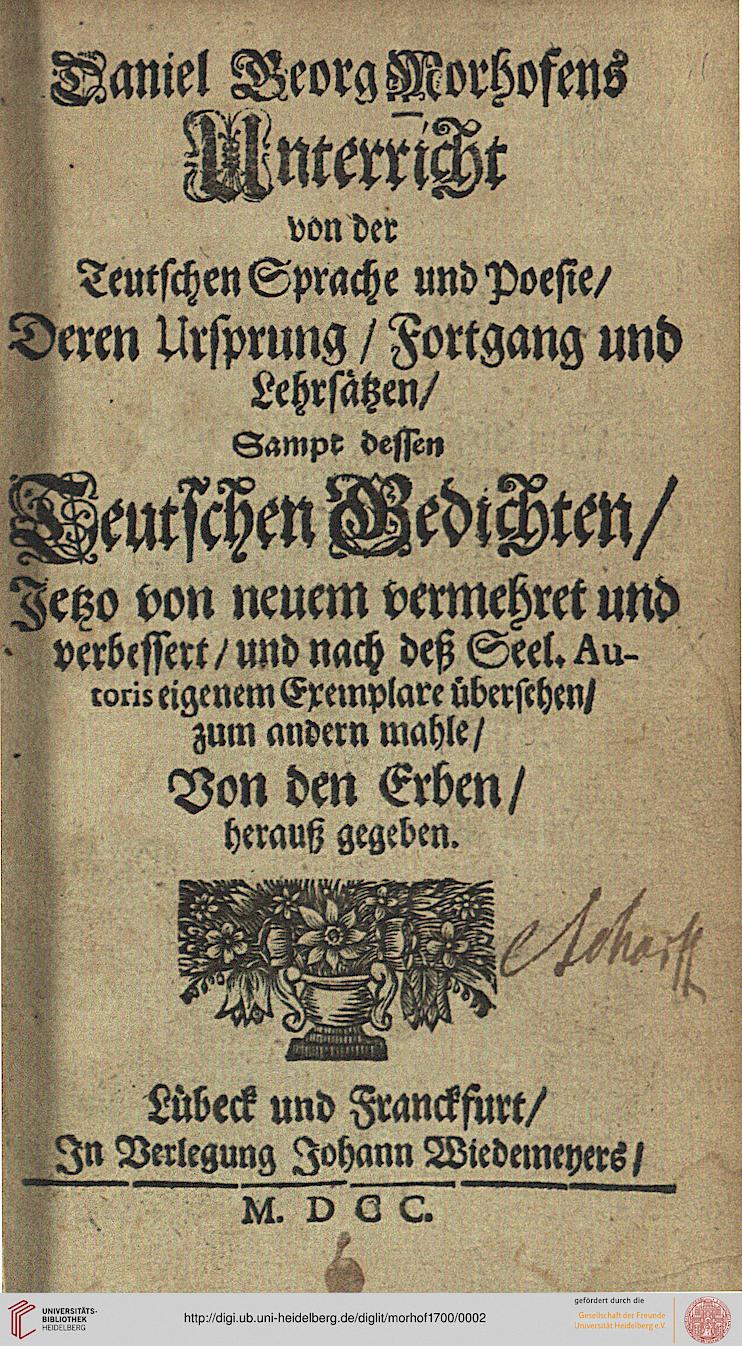 Daniel Georg Morhofens
Unterricht
von der
Teutschen Sprache und Poesie/
Deren Ursprung / Fortgang und
Lehrsätzen/
Sampt dessen
Teutschen Gedichten/
Jetzo von neuem vermehret und
verbessert / und nach deß Seel. Au-
toris eigenem Exemplare übersehen/
zum andern mahle/
Von den Erben/
herauß gegeben.
Lübeck und Franckfurt/
In Verlegung Johann Wiedemeyers/
M. D C C.
UNIVERSITÄTS-
BIBLIOTHEK
HEIDELBERG
http://digi.ub.uni-heidelberg.de/diglit/morhof1700/0002
gefördert durch die
Gesellschaft der Freunde
Universität Heidelberg e.V.